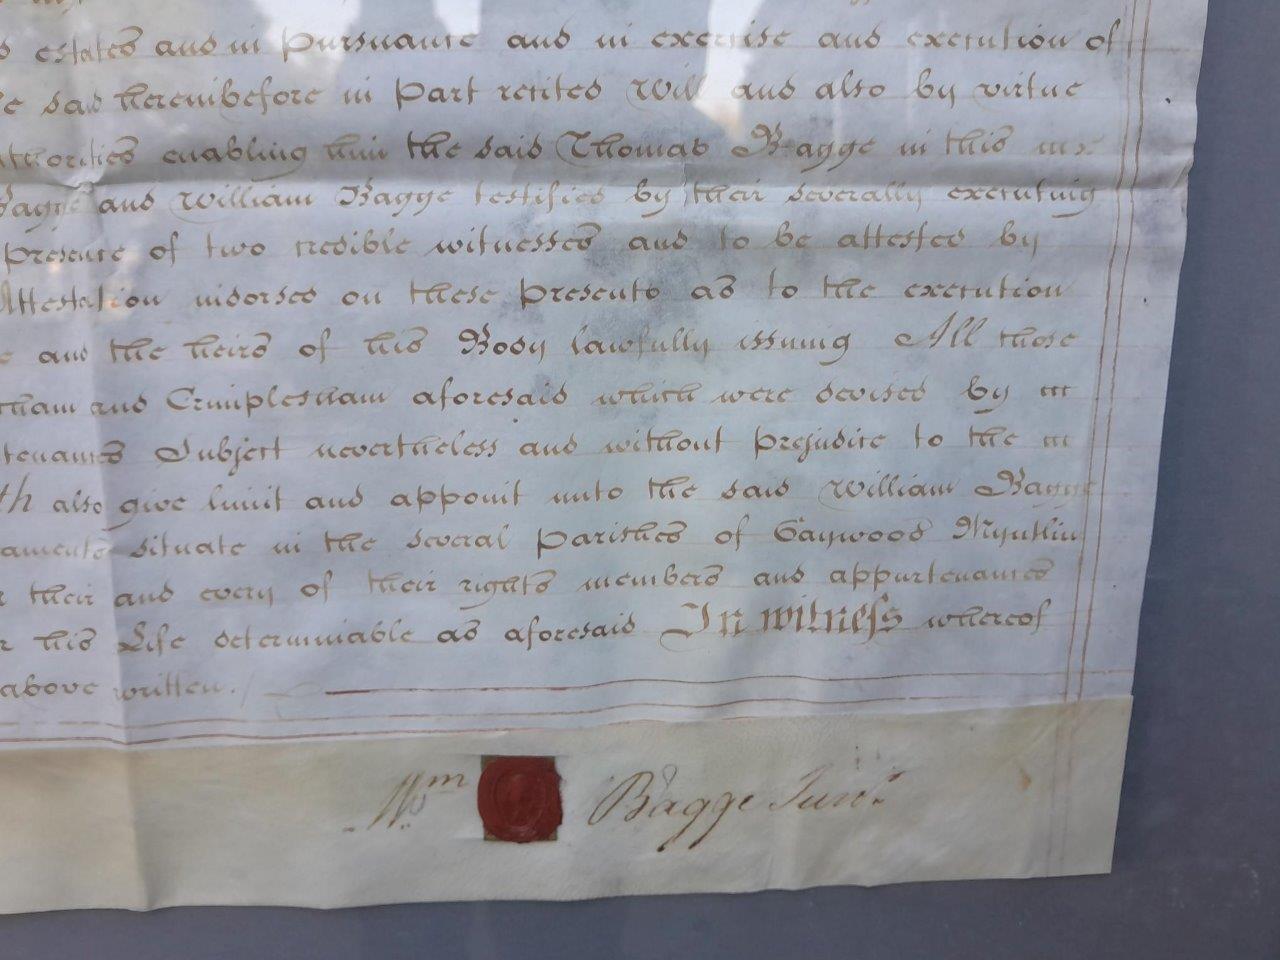 estates and in pursuance and in exercise and execution of
said hereinbefore in Part recited Will and also by virtue
enabling him the said Thomas Bagge in this
Bagge and William Bagge testified by their severally executing
presence of two credible witnesses and to be attested by
Attestation indorsed on these Presents as to the execution
and the heirs of his Body lawfully issuing All those
and Crimplesham aforesaid which were devised by
Subject nevertheless and without prejudice to the
also give limit and appoint unto the said William Bagge
situate in the several parishes of Gaywood Mintlin
their and every of their rights members and appurtenances
his Life determinable as aforesaid In witness whereof
above written.
Wm Bagge Junr.